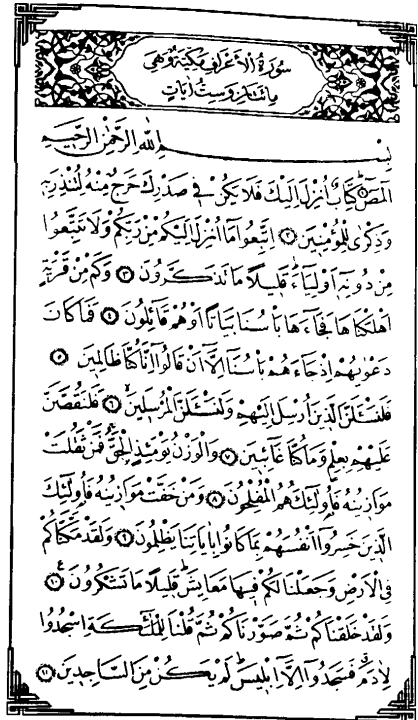 سُورَةُ الْاَعْرَافِ مَكِّيَّةٌ وَهِيَ
مِائَتَانِ وَسِتُّ اٰيَاتٍ
بِسْمِ اللّٰهِ الرَّحْمٰنِ الرَّحِيمِ
الٓمٓصٓ ۝١ كِتَابٌ اُنْزِلَ اِلَيْكَ فَلَا يَكُنْ فِي صَدْرِكَ حَرَجٌ مِنْهُ لِتُنْذِرَ بِهِ
وَذِكْرٰى لِلْمُؤْمِنِينَ ۝٢ اِتَّبِعُوا مَٓا اُنْزِلَ اِلَيْكُمْ مِنْ رَبِّكُمْ وَلَا تَتَّبِعُوا
مِنْ دُونِهِٓ اَوْلِيَٓاءَ قَلِيلًا مَا تَذَكَّرُونَ ۝٣ وَكَمْ مِنْ قَرْيَةٍ
اَهْلَكْنَاهَا فَجَٓاءَهَا بَأْسُنَا بَيَاتًا اَوْ هُمْ قَٓائِلُونَ ۝٤ فَمَا كَانَ
دَعْوٰيهُمْ اِذْ جَٓاءَهُمْ بَأْسُنَٓا اِلَّٓا اَنْ قَالُٓوا اِنَّا كُنَّا ظَالِمِينَ ۝٥
فَلَنَسْـَٔلَنَّ الَّذِينَ اُرْسِلَ اِلَيْهِمْ وَلَنَسْـَٔلَنَّ الْمُرْسَلِينَ ۝٦ فَلَنَقُصَّنَّ
عَلَيْهِمْ بِعِلْمٍ وَمَا كُنَّا غَٓائِبِينَ ۝٧ وَالْوَزْنُ يَوْمَئِذٍ الْحَقُّ فَمَنْ ثَقُلَتْ
مَوَازِينُهُ فَاُو۬لٰٓئِكَ هُمُ الْمُفْلِحُونَ ۝٨ وَمَنْ خَفَّتْ مَوَازِينُهُ فَاُو۬لٰٓئِكَ
الَّذِينَ خَسِرُٓوا اَنْفُسَهُمْ بِمَا كَانُوا بِاٰيَاتِنَا يَظْلِمُونَ ۝٩ وَلَقَدْ مَكَّنَّاكُمْ
فِي الْاَرْضِ وَجَعَلْنَا لَكُمْ فِيهَا مَعَايِشَ قَلِيلًا مَا تَشْكُرُونَ ۝١٠
وَلَقَدْ خَلَقْنَاكُمْ ثُمَّ صَوَّرْنَاكُمْ ثُمَّ قُلْنَا لِلْمَلٰٓئِكَةِ اسْجُدُوا
لِاٰدَمَ فَسَجَدُٓوا اِلَّٓا اِبْلِيسَ لَمْ يَكُنْ مِنَ السَّاجِدِينَ ۝١١